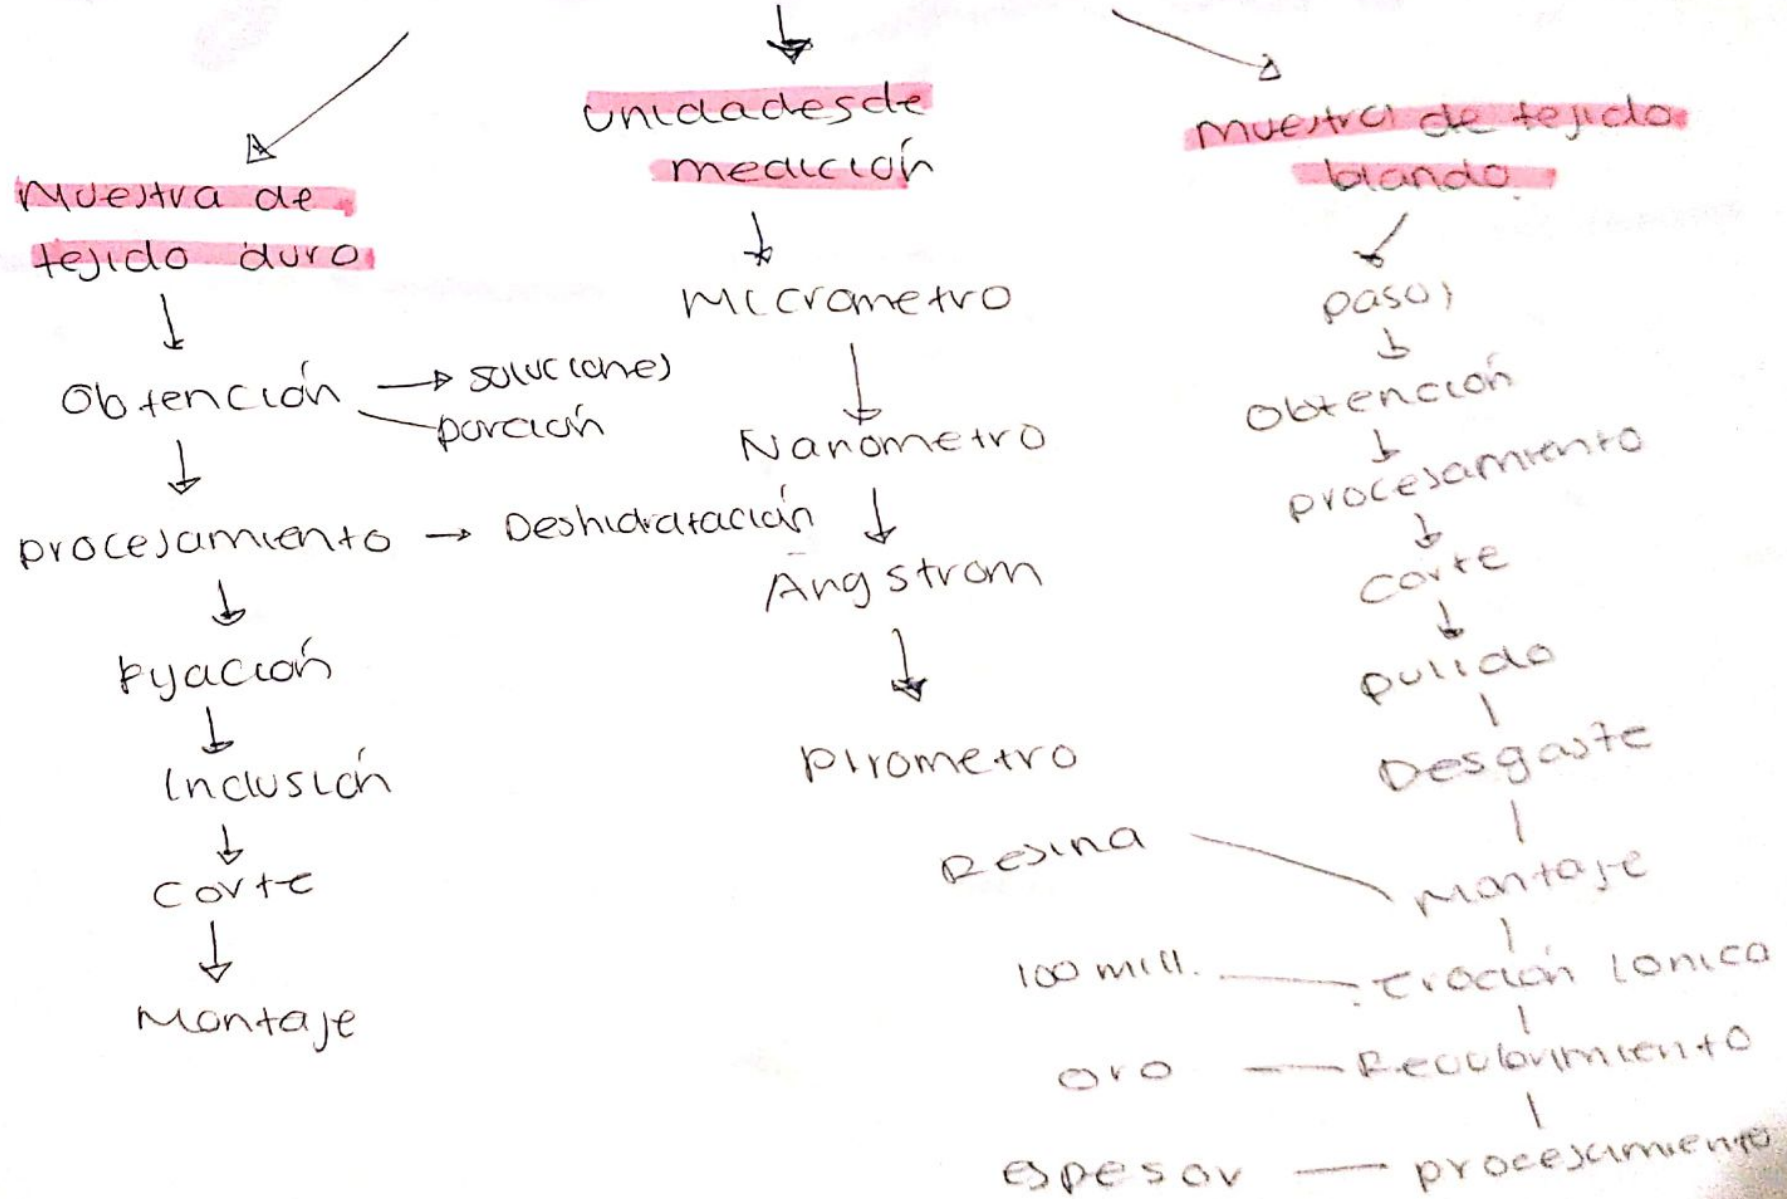 Muestra de
tejido duro
Obtención
soluciones
porción
procesamiento
Deshidratación
Fijación
Inclusión
Corte
Montaje
Unidades de
medición
Micrometro
Nanómetro
Angstrom
Pirometro
Muestra de tejido
blando
pasos
Obtención
procesamiento
Corte
pulido
Desgaste
Resina
Montaje
100 mill.
Eroción Ionica
oro
Recubrimiento
espesor
procesamiento